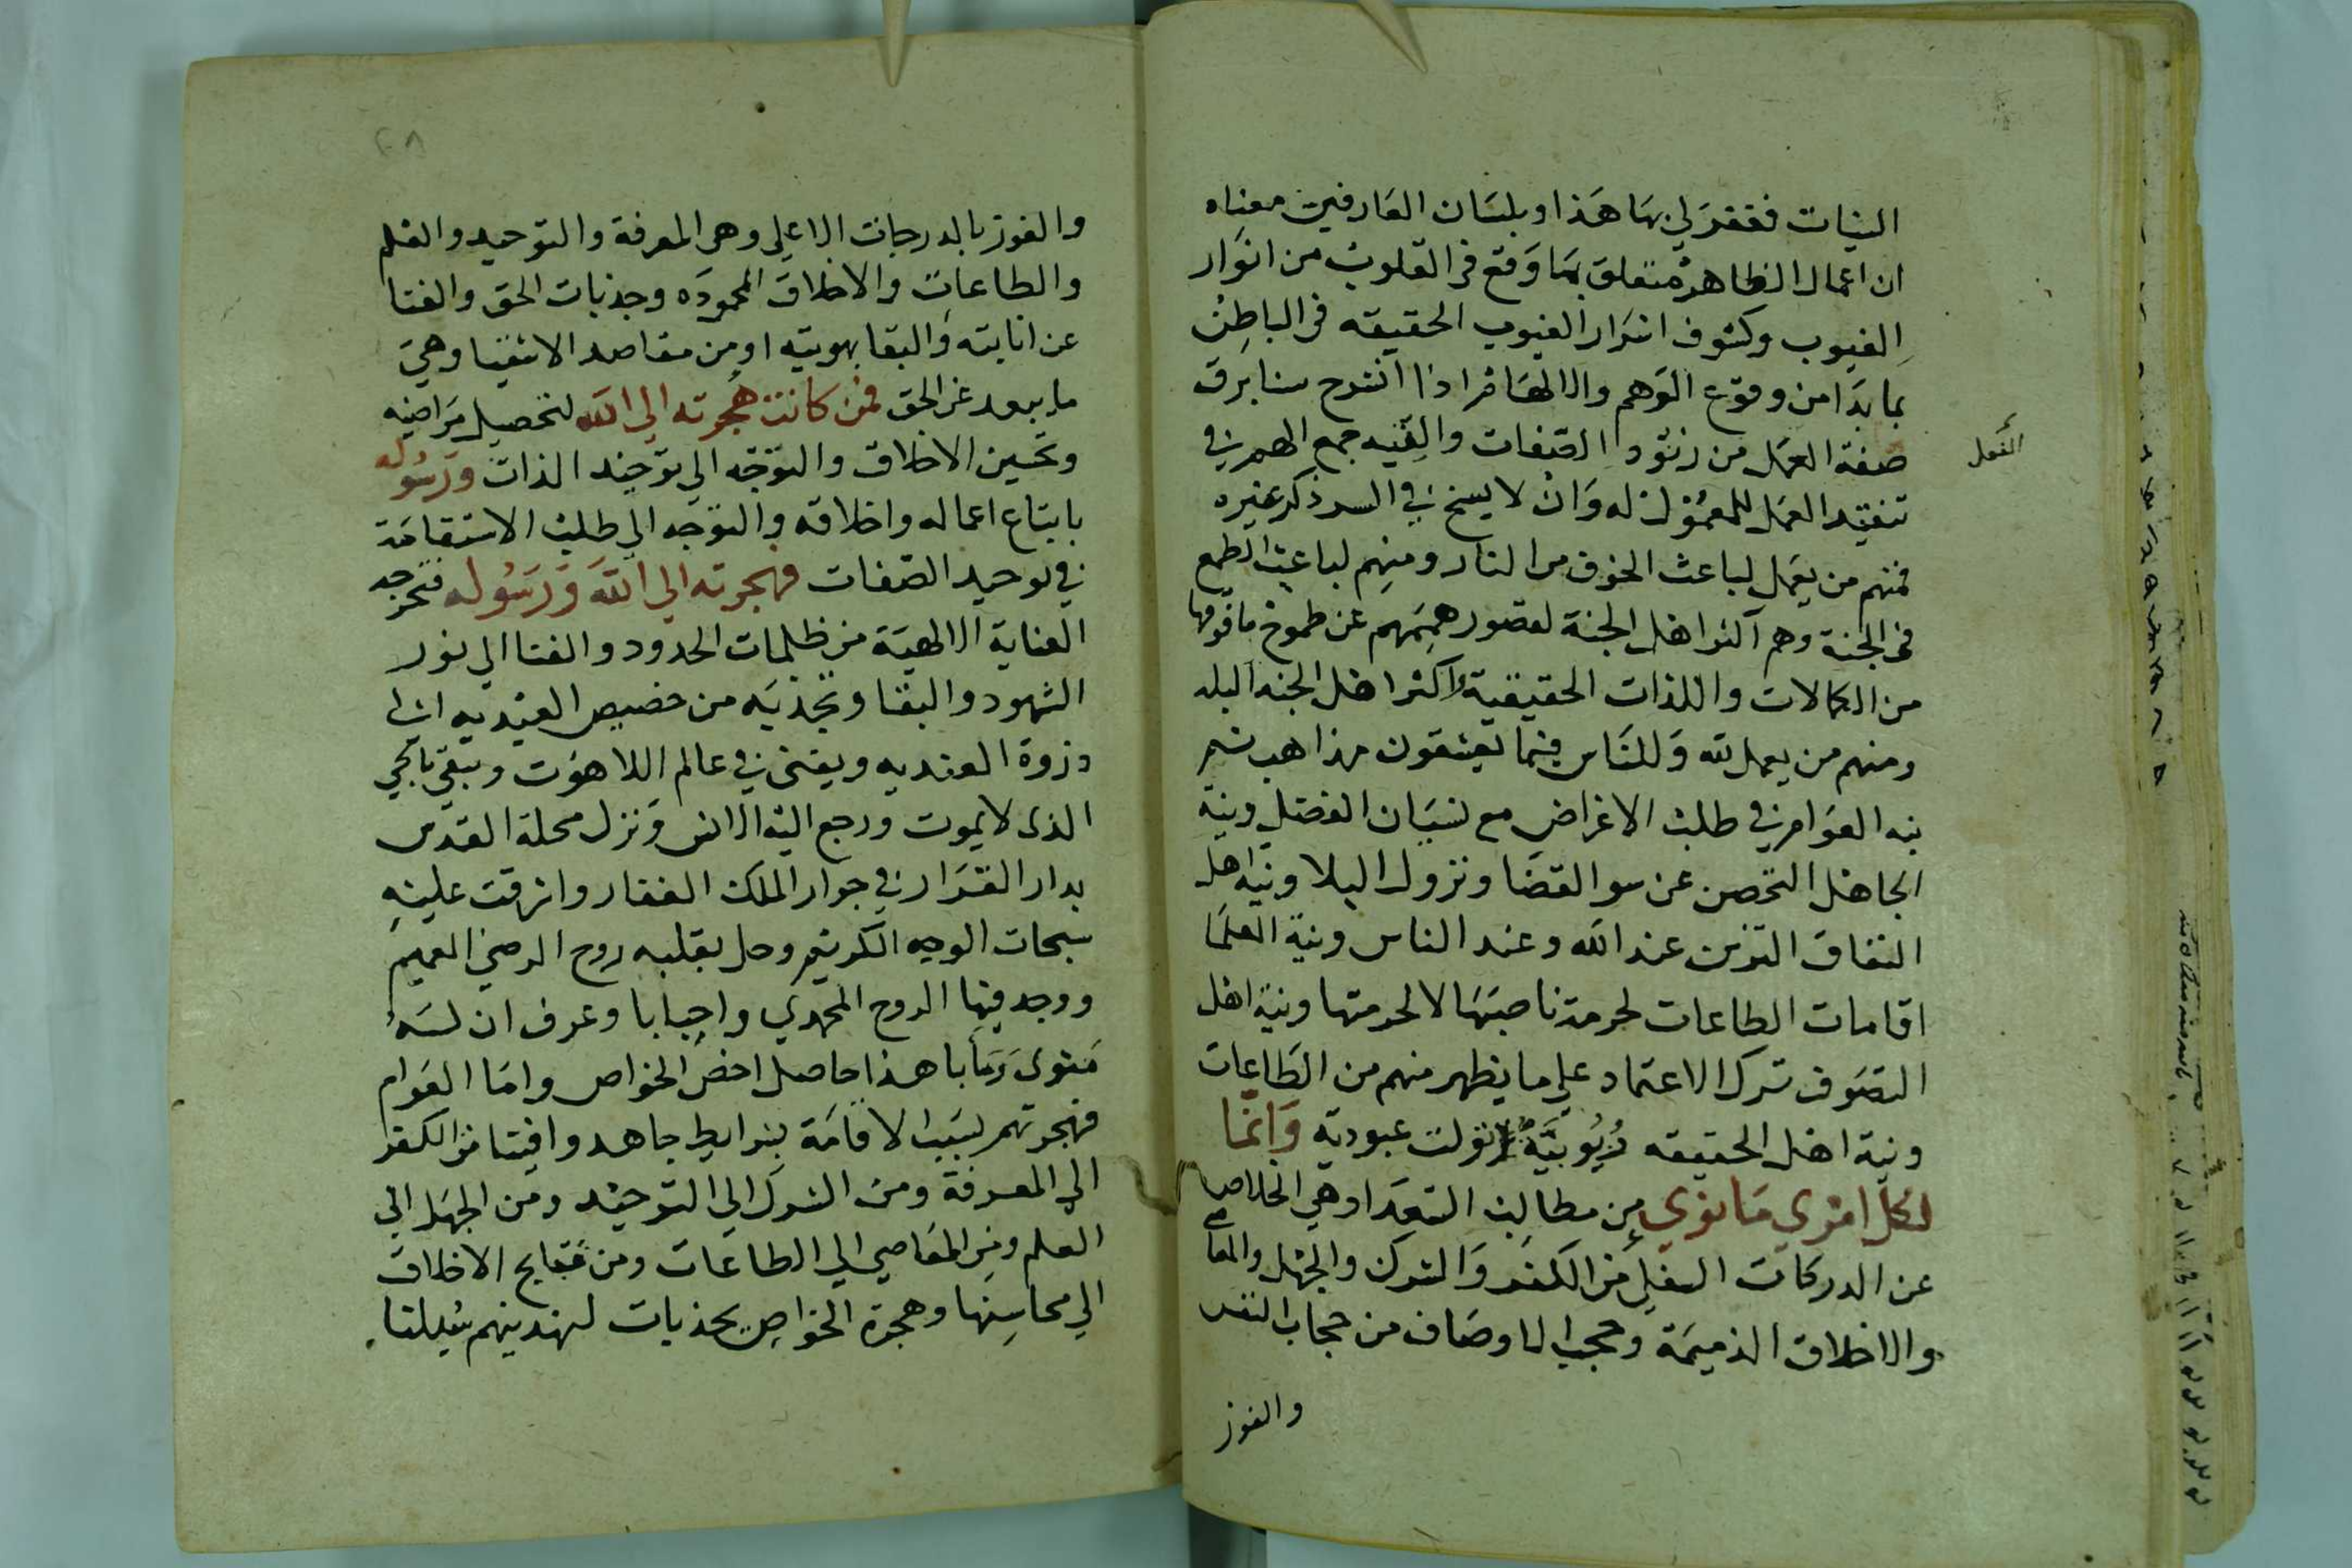 النيات فغفر لي بها هذا وبلسان العارفين معناه
ان اعمال الظاهر متعلق بما وقع في القلوب من انوار
الغيوب وكشوف اسرار الغيوب الحقيقه في الباطن
بما بدا من وقوع الوهم والالهام اذا انقدح سنا برق
صفة العمل من الصفات والنيه جمع الهم في
تنفيذ العمل للمعمول له وان لا يسنح في السر ذكر غيره
فمنهم من يعمل لباعث الخوف من النار ومنهم لباعث الطمع
في الجنة وهم اكثر اهل الجنة لقصور هممهم عن طموح ما فوقها
من الكمالات واللذات الحقيقية اكثر اهل الجنه البله
ومنهم من يعمل لله وللناس فيما يعشقون مذاهب ثم
نيه العوام في طلب الاغراض مع نسيان الفضل ونية
الجاهل التحصن عن سو القضا ونزول البلا ونية اهل
النفاق التزين عند الله وعند الناس ونية العلما
اقامات الطاعات لحرمة ناصبها لا لحرمتها ونية اهل
التصوف ترك الاعتماد على ما يظهر منهم من الطاعات
ونية اهل الحقيقه ربوبية تولت عبودية وانما
لكل امرئ ما نوى من مطالب السعدا وهي الخلاص
عن الدركات السفلى من الكفر والشرك والجهل والمعاصي
والاخلاق الذميمة وحجب الاوصاف من حجاب النفس
والفوز
والفوز بالدرجات الاعلى وهي المعرفة والتوحيد والعلم
والطاعات والاخلاق المحموده وجذبات الحق والفنا
عن انانيته والبقا بهويته او من مقاصد الاشقيا وهي
ما يبعد عن الحق فمن كانت هجرته الى الله لتحصيل مراضيه
وتحسين الاخلاق والتوجه الى توحيد الذات ورسوله
باتباع اعماله واخلاقه والتوجه الى طلب الاستقامة
في توحيد الصفات فهجرته الى الله ورسوله فتخرجه
العناية الالهية من ظلمات الحدود والفنا الى نور
الشهود والبقا وتجذبه من حضيض العبديه الى
دزوة العنديه ويفنى في عالم اللاهوت ويبقى بالحي
الذى لا يموت ورجع اليه الانس ونزل محلة القدس
بدار القرار في جوار الملك الغفار واشرقت عليه
سبحات الوجه الكريم وحل بقلبه روح الرضي العميم
ووجد فيها الروح المحمدي واحبابا وعرف ان له
مثوى ومآبا هذا حاصل اخص الخواص واما العوام
فهجرتهم لسبب الاقامة بشرايط جاهدوا فينا من الكفر
الى المعرفة ومن الشرك الى التوحيد ومن الجهل الى
العلم ومن المعاصي الى الطاعات ومن قبايح الاخلاق
الى محاسنها وهجرة الخواص بجذبات لنهدينهم سبلنا